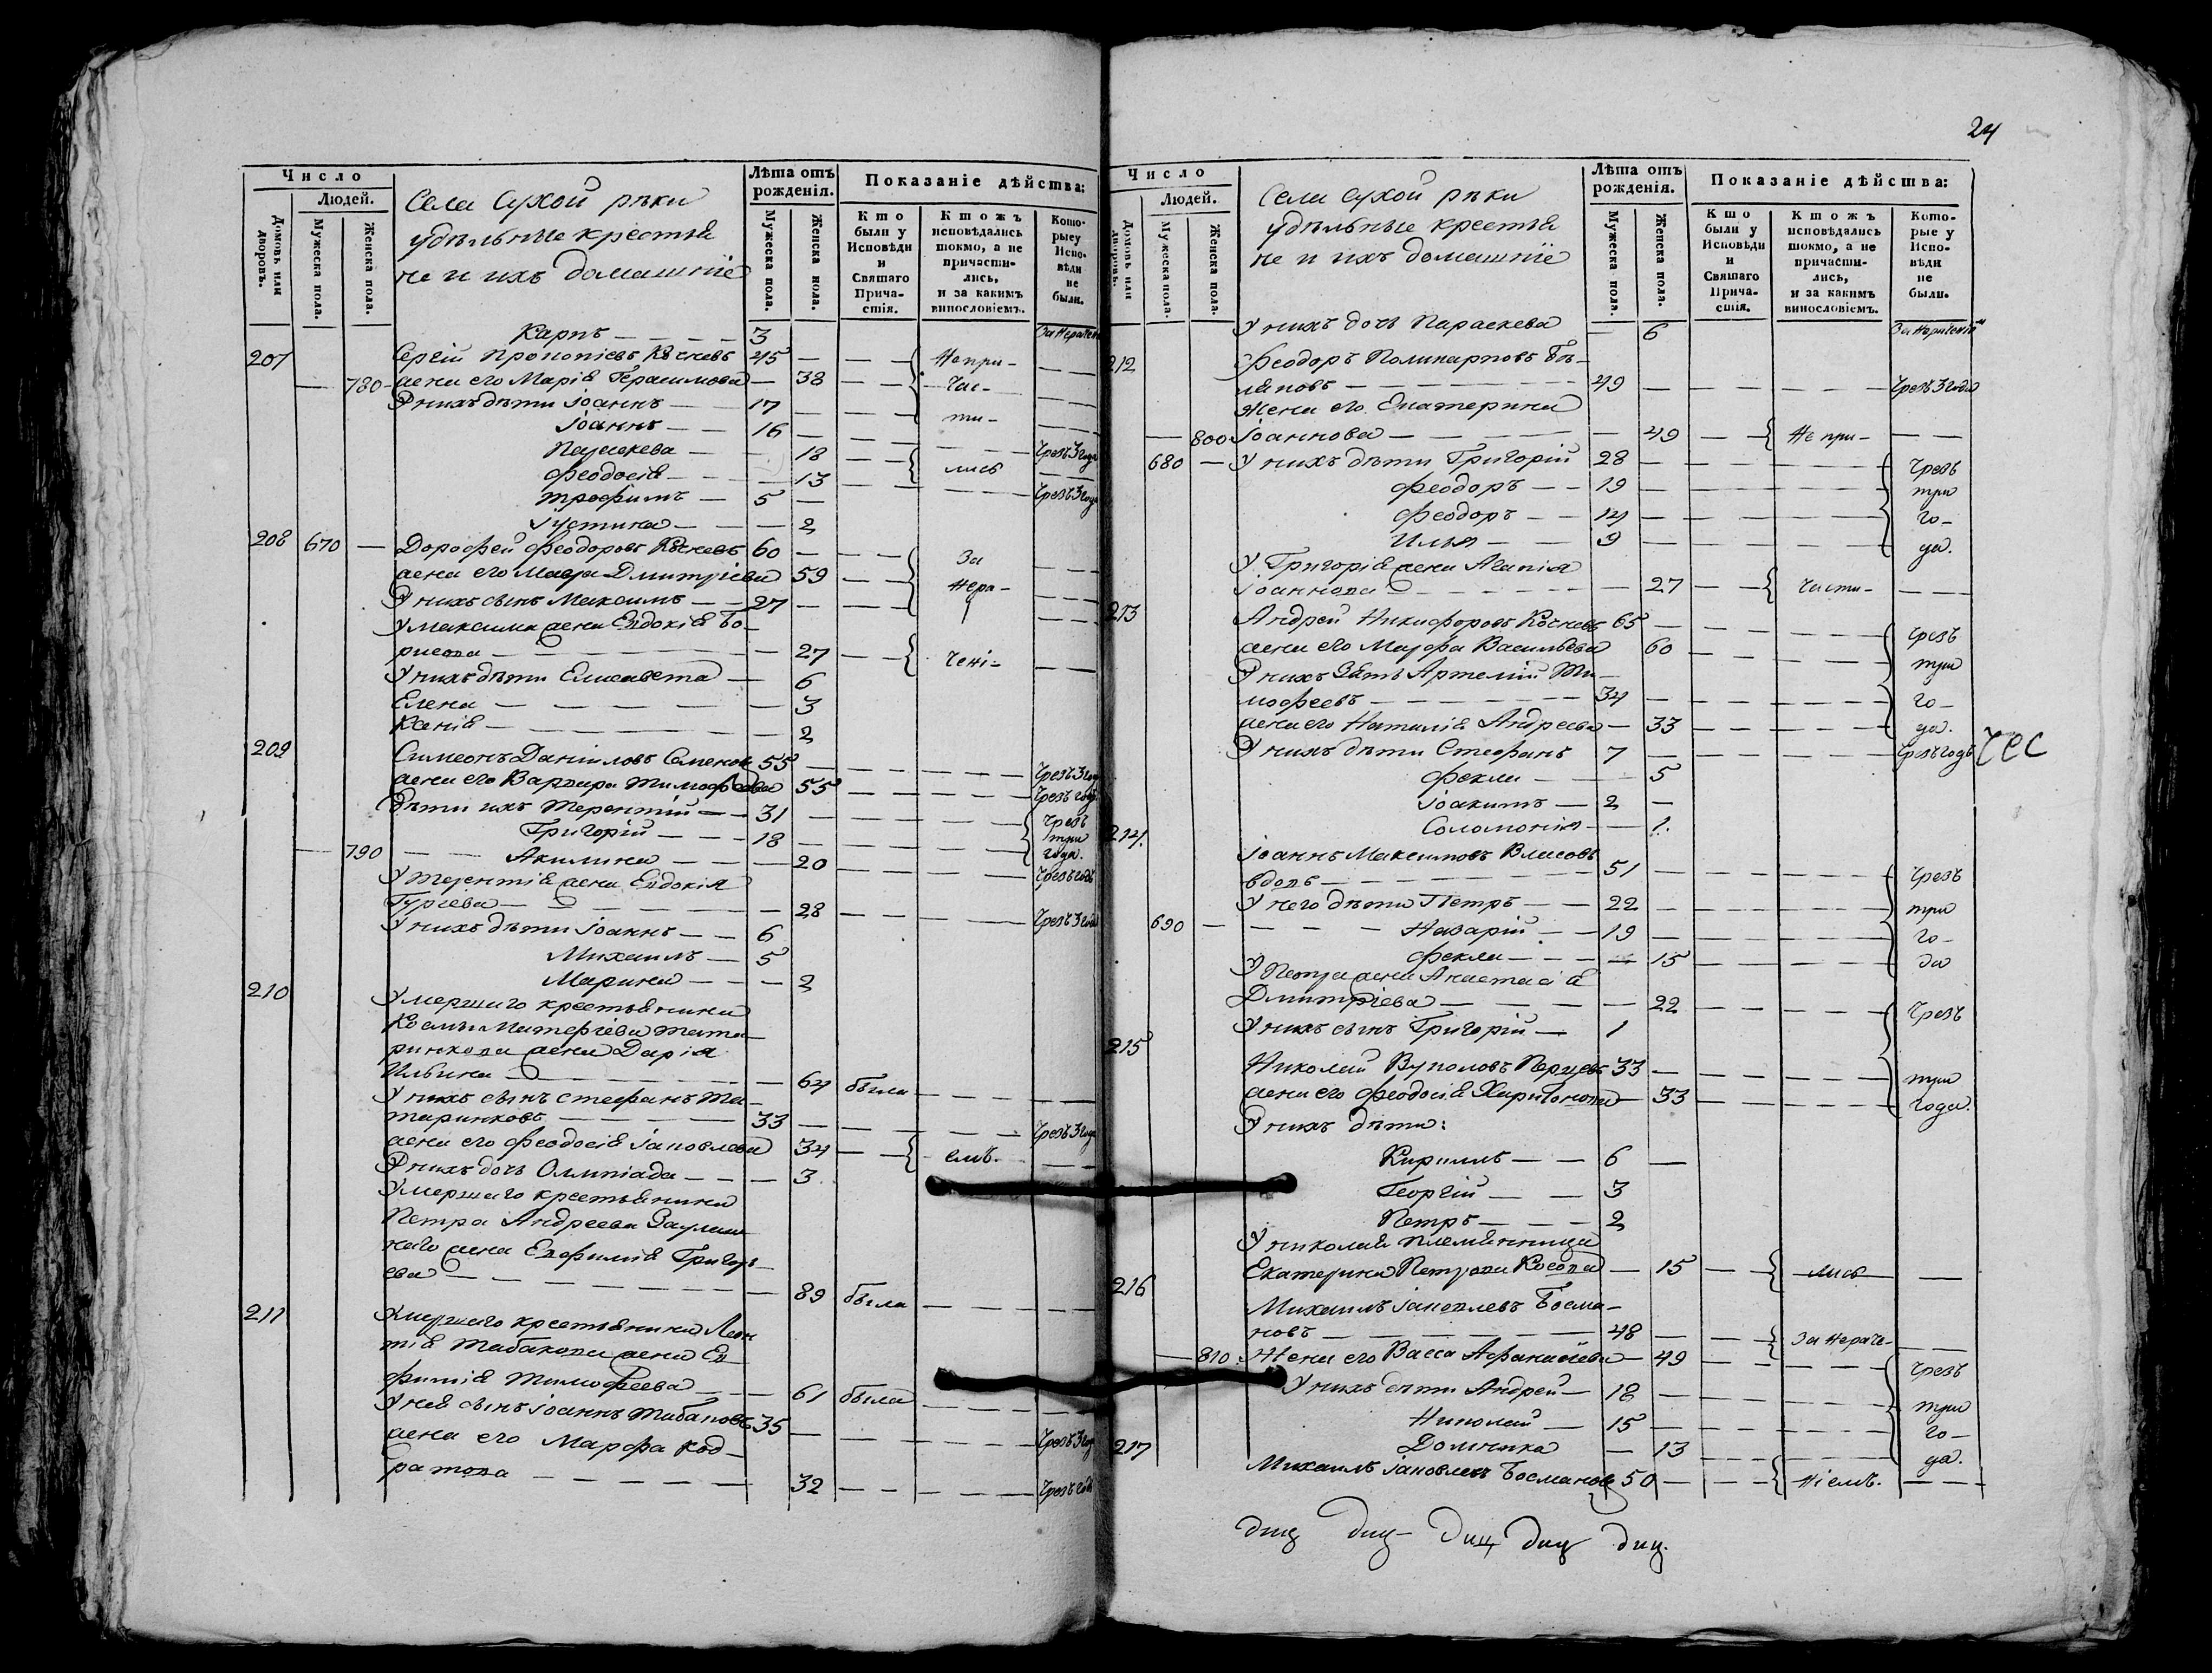 Число
Людей.
Домовъ или дворовъ.
Мужеска пола.
Женска пола.
Села Сухой рѣки
удѣльные крестья
не и ихъ домашніе
Лѣта отъ рожденія.
Мужеска пола.
Женска пола.
Показаніе дѣйства:
Кто были у Исповѣди и Святаго Прича-стія.
Ктожъ исповѣдались токмо, а не причасти-лись, и за какимъ винословіемъ.
Кото-рыеу Испо-вѣди не были.
Карпъ — 3
207 Сергій Прокопіевъ 45 — Непри-
780 жена его Марія Герасимова — 38 — час-
У нихъ дѣти Іоаннъ — 17 — ти-
Іоаннъ — 16
Параскева — 18 — Чрезъ 3 года
Феодосія — 13 — лись
Трофимъ — 5 — Чрезъ 3 года
Іустина — 2
208 670 — Дорофей Феодоровъ 60 — За
жена его Мавра Дмитріева 59 — Нера-
У нихъ сынъ Максимъ — 27
У Максима жена Евдокія Бо-
рисова — 27 — чені-
У нихъ дѣти Елисавета — 6
Елена — 3
Ксенія — 2
209 Симеонъ Даніиловъ 55 — Чрезъ 3 года
жена его Варвара Тимофеева 55 — Чрезъ годъ
дѣти ихъ Терентій — 31 — Чрезъ
Григорій — 18 — три
790 — Акилина — 20 — года.
У Терентія жена Евдокія — Чрезъ годъ
Гуріева — 28 — Чрезъ 3 года
У нихъ дѣти Іоаннъ — 6
Михаилъ — 5
Марина — 2
210 Умершаго крестьянина
Космы Татаринкова жена Дарія
Ильина — 64 была
У нихъ сынъ Стефанъ Та-
таринковъ — 33 — Чрезъ 3 года
жена его Феодосія Іаковлева 34 — емъ.
У нихъ дочь Олимпіада — 3
Умершаго крестьянина
Петра Андреева
жена Евфимія Григорь-
ева — 89 была
211 Умершаго крестьянина Леон
тія Табакова жена Ев
фимія Тимофеева — 61 была
У нея сынъ Іоаннъ Табаковъ 35 — Чрезъ 3 года
жена его Марфа Код-
ратова — 32 — Чрезъ годъ
24
Число
Людей.
Домовъ или дворовъ.
Мужеска пола.
Женска пола.
Села Сухой рѣки
удѣльные крестья
не и ихъ домашніе
Лѣта отъ рожденія.
Мужеска пола.
Женска пола.
Показаніе дѣйства:
Кто были у Исповѣди и Святаго Прича-стія.
Ктожъ исповѣдались токмо, а не причасти-лись, и за какимъ винословіемъ.
Кото-рые у Испо-вѣди не были.
У нихъ дочь Параскева — 6
212 Феодоръ Поликарповъ Бѣ-
ляковъ — 49 — Чрезъ 3 года
Жена его Екатерина
800 Іоаннова — 49 — Не при-
680 — У нихъ дѣти Григорій 28 — Чрезъ
Феодоръ — 19 — три
Феодоръ — 14 — го-
Илья — 9 — да.
У Григорія жена Агапія
Іоаннова — 27 — части-
213 Андрей Никифоровъ 65 — Чрезъ
жена его Марфа Васильева 60 — три
У нихъ зять Артемій Ти-
мофеевъ — 34 — го-
жена его Наталія Андреева — 33 — да.
У нихъ дѣти Стефанъ 7 — Чрезъ годъ
чес
Фекла — 5
Іоакимъ — 2
Соломонія — 1.
214. Іоаннъ Максимовъ Власовъ
вдовъ — 51 — Чрезъ
У него дѣти Петръ — 22 — три
690 — Назарій — 19 — го-
Фекла — 15 — да
У Петра жена Анастасія
Дмитріева — 22 — Чрезъ
У нихъ сынъ Григорій — 1
215 Николай 33 — три
жена его Феодосія Харитонова — 33 — года.
У нихъ дѣти:
Кириллъ — 6
Георгій — 3
Петръ — 2
У Николая племянница
Екатерина Петрова Косова — 15 — лись
216 Михаилъ Іаковлевъ Босма-
новъ — 48 — За нераче-
810 Жена его Васса Афанасіева — 49 — Чрезъ
У нихъ дѣти Андрей — 18 — три
Николай — 15 — го-
Домника — 13 — да.
217 Михаилъ Іаковлевъ Босмановъ 50 — ніемъ.
диц диц диц диц диц.